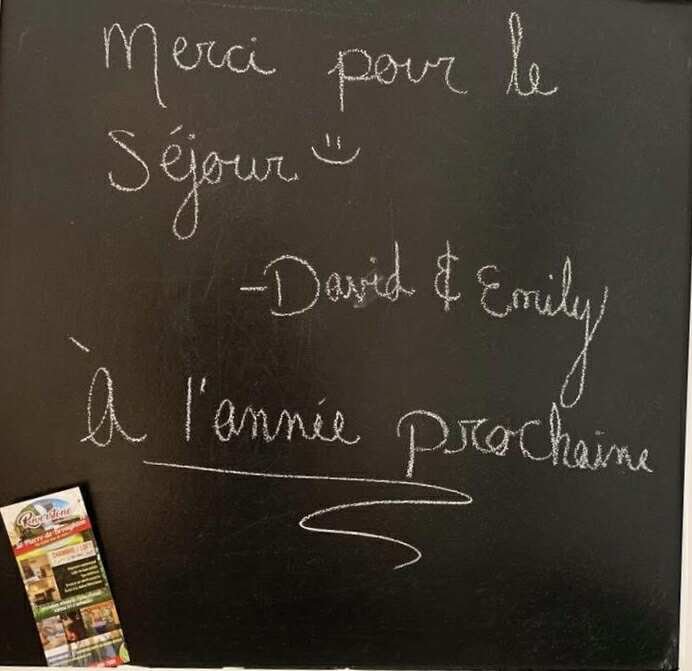 Merci pour le
Séjour
-David & Emily
À l'année prochaine
Riverstone
CHAMBRE / LOFT